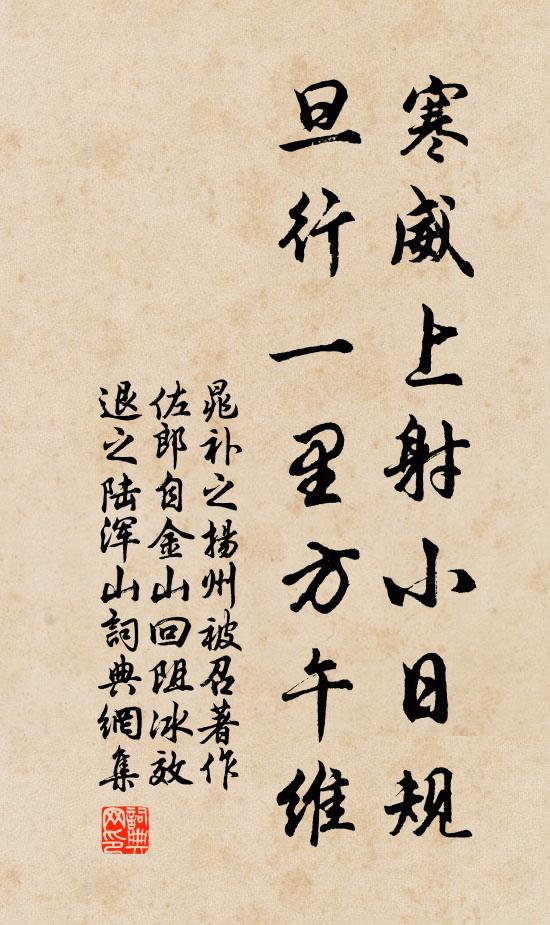 寒威上射小日规
旦行一里方午维
晁补之揚州被召著作
佐郎自金山回阻冰效
退之陆浑山詞典網集
詞典网印